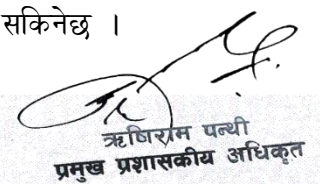 सकिनेछ ।
ऋषिराम पन्थी
प्रमुख प्रशासकीय अधिकृत